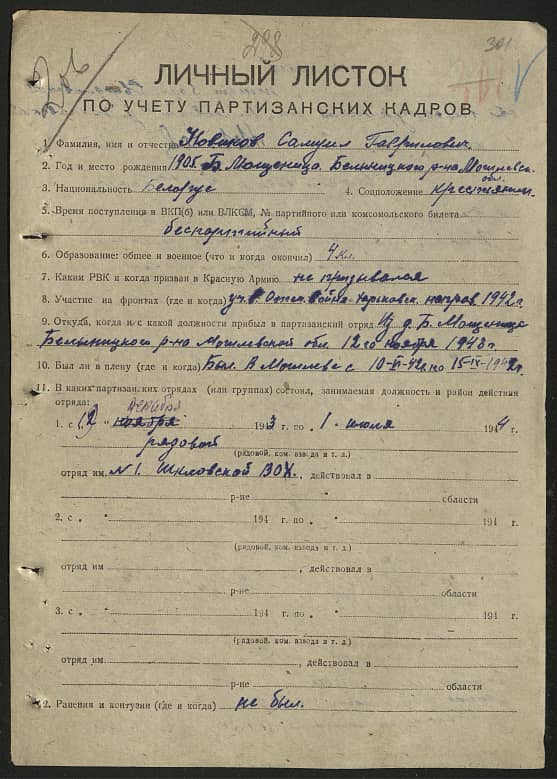 206
288
301
ЛИЧНЫЙ ЛИСТОК
ПО УЧЕТУ ПАРТИЗАНСКИХ КАДРОВ
1. Фамилия, имя и отчество Новиков Самуил Гаврилович
2. Год и место рождения 1905 Б. Мощеница Белыницкого р-на Могилевск. обл.
3. Национальность Белорус 4. Соцположение крестьянин
5. Время поступления в ВКП(б) или ВЛКСМ, № партийного или комсомольского билета
беспартийный
6. Образование: общее и военное (что и когда окончил) 4 кл.
7. Каким РВК и когда призван в Красную Армию не призывался
8. Участие на фронтах (где и когда) уч. Отеч. война 1942 г.
9. Откуда, когда и с какой должности прибыл в партизанский отряд Из д. Б. Мощеница
Белыницкого р-на Могилевской обл. 12го ноября 1943 г.
10. Был ли в плену (где и когда) Был в Могилеве с 10-VI-42 по 15-IX-1942 г.
11. В каких партизанских отрядах (или группах) состоял, занимаемая должность и район действия
отряда:
декабря
1. с 12 " ноября 1943 г. по 1 - июля 1944 г.
рядовой
(рядовой, ком. взвода и т. д.)
отряд им. №1. Шкловской ВОГ., действовал в
р-не области
2. с „ " 194 г. по „ " 194 г.
(рядовой, ком. взвода и т. д.)
отряд им , действовал в
р-не области
3. с „ " 194 г. по „ " 194 г.
(рядовой, ком. взвода и т. д.)
отряд им , действовал в
р-не области
12. Ранения и контузии (где и когда) не был.